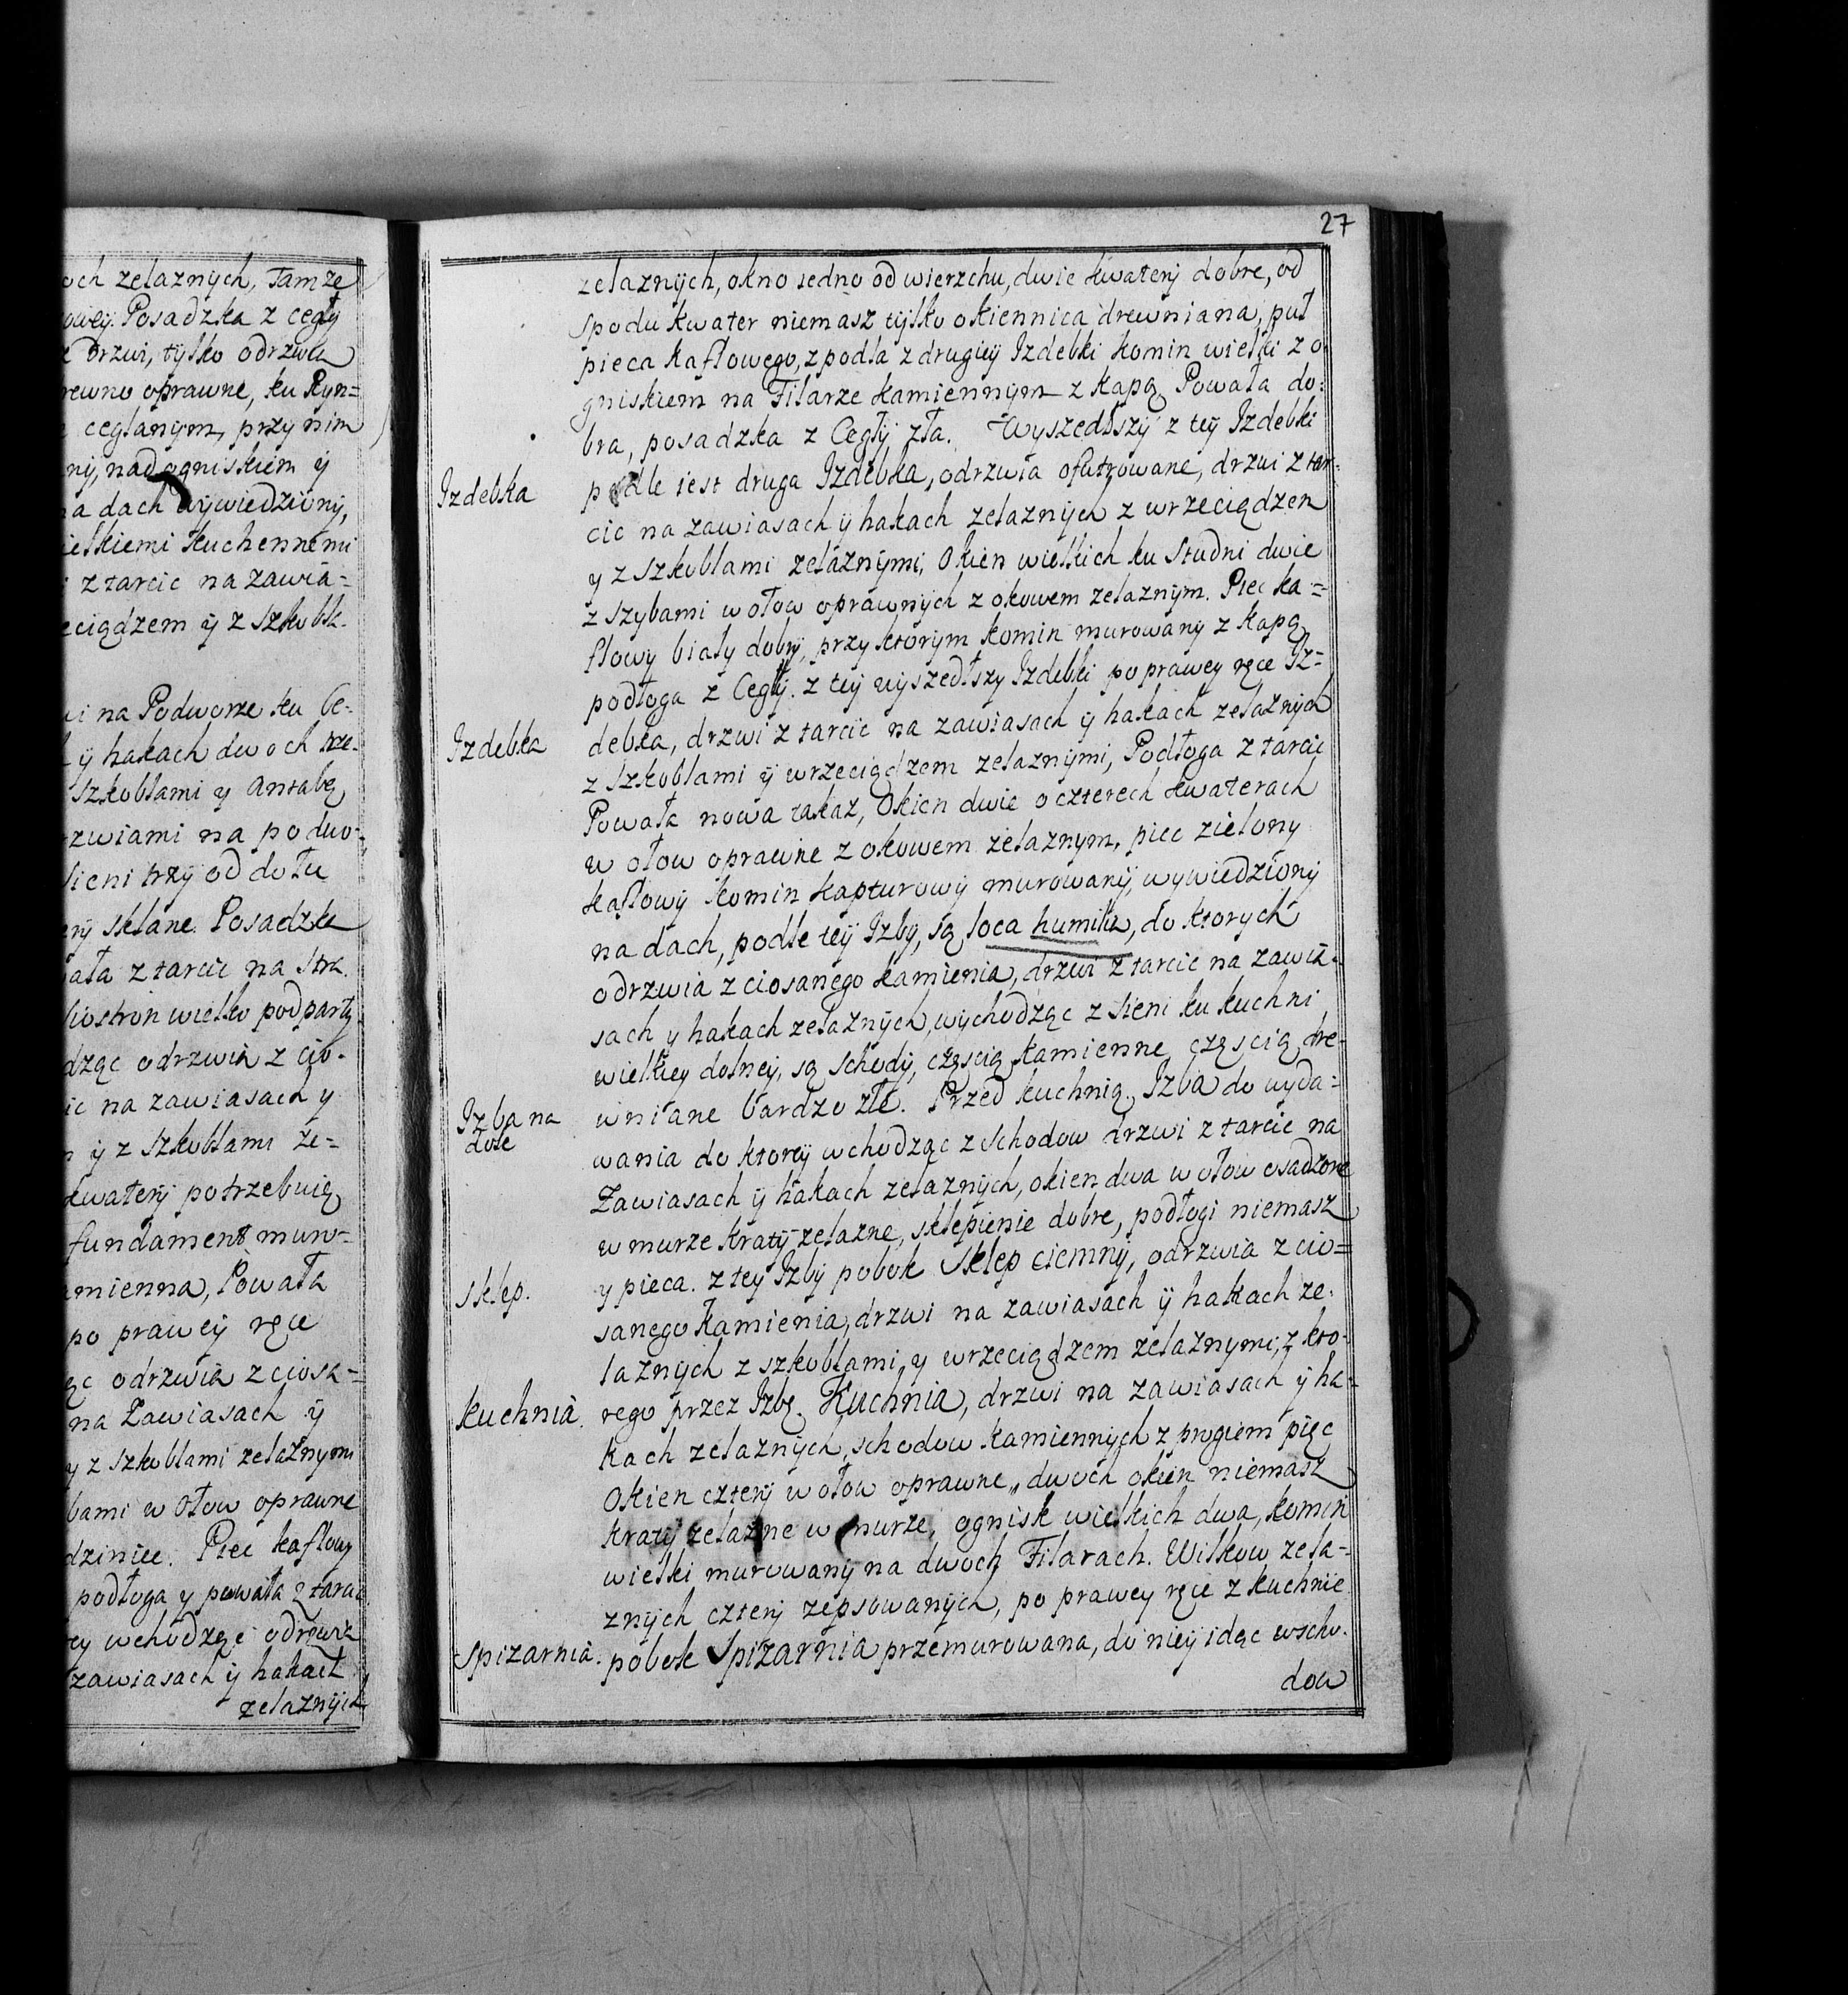 och zelaznych, Tamze
owey. Posadzka z cegły
drzwi, tylko odrzwia
rewno oprawne, ku Ryn=
ceglanym, przy nim
ny, nad ogniskiem y
na dach wywiedziony,
ielkiemi kuchennemi
z tarcic na zawia=
eciądzem ÿ z szkobla-
wi na Podworze ku Ce-
ÿ hakach dwoch
szkoblami y Antabą
rzwiami na podwo-
sieni trzÿ od dołu
erÿ sklane. Posadzka
ała z tarcic na
wielko podparty
dząc odrzwia z cio-
ic na zawiasach y
ÿ z szkoblami ze=
kwaterÿ potrzebuią
fundament muro=
amienna, Powała
po prawey ręce
ąc odrzwia z ciosa=
na Zawiasach ÿ
y z szkoblami zelaznymi
bami w ołow oprawne
dziniec. Piec kaflowy
podłoga y powała z tarcic
ey wchodząc odrzwia
zawiasach ÿ hakach
zelaznÿch
27
zelaznÿch, okno iedno od wierzchu, dwie kwaterÿ dobre, od
spodu kwater niemasz tÿlko okiennica drewniana, puł
pieca kaflowego, z podla z drugieÿ Izdebki komin wielki z o-
gniskiem na Filarze kamiennÿm z kapą Powała do:
bra, posadzka z Cegłÿ zła. Wyszedszÿ z teÿ Izdebki
Izdebka podle iest druga Izdebka, odrzwia ofutrowane, drzwi z tar-
cic na zawiasach ÿ hakach zelaznÿch z wrzeciądzem
y z szkoblami zelaznÿmi, Okien wielkich ku studni dwie
z szybami w ołow oprawnÿch z okowem zelaznÿm. Piec ka=
flowy białÿ dobrÿ, przy ktorÿm komin murowanÿ z kapą
podłoga z Cegłÿ. z teÿ wyszedłszy Izdebki po prawey ręce Iz=
Izdebka debka, drzwi z tarcic na zawiasach ÿ hakach zelaznÿch
z szkoblami ÿ wrzeciądzem zelaznÿmi, Podłoga z tarcic
Powała nowa także, Okien dwie o czterech kwaterach
w ołow oprawne z okowem zelaznym, piec zielony
kaflowÿ komin kapturowÿ murowanÿ, wywiedzionÿ
na dach, podle teÿ Izbÿ, są loca humilia, do ktorych
odrzwia z ciosanego kamienia, drzwi z tarcic na zawia-
sach y hakach zelaznÿch, wychodząc z sieni ku kuchni
wielkiey dolney, są schodÿ, częscią kamienne, częscią dre-
Izba na dole wniane bardzo złe. Przed kuchnią Izba do wyda=
wania do ktoreÿ wchodząc z schodow drzwi z tarcic na
Zawiasach ÿ hakach zelaznÿch, okien dwa w ołow osadzone
w murze kratÿ zelazne, sklepienie dobre, podłogi niemasz
sklep. y pieca. z teÿ Izbÿ pobok Sklep ciemnÿ, odrzwia z cio=
sanego kamienia, drzwi na zawiasach ÿ hakach ze-
laznÿch z szkoblami, y wrzeciądzem zelaznymi, z kto-
kuchnia. rego przez Izbę. Kuchnia, drzwi na zawiasach ÿ ha-
kach zelaznÿch, schodow kamiennÿch z progiem pięc
Okien czterÿ w ołow oprawne, dwoch okien niemasz
kratÿ zelazne w murze, ognisk wielkich dwa, komin
wielki murowanÿ na dwoch Filarach. Wilkow zela=
znÿch czterÿ zepsowanÿch, po prawey ręce z kuchnie
Spizarnia. pobok Spizarnia przemurowana, do nieÿ idąc wscho-
dow